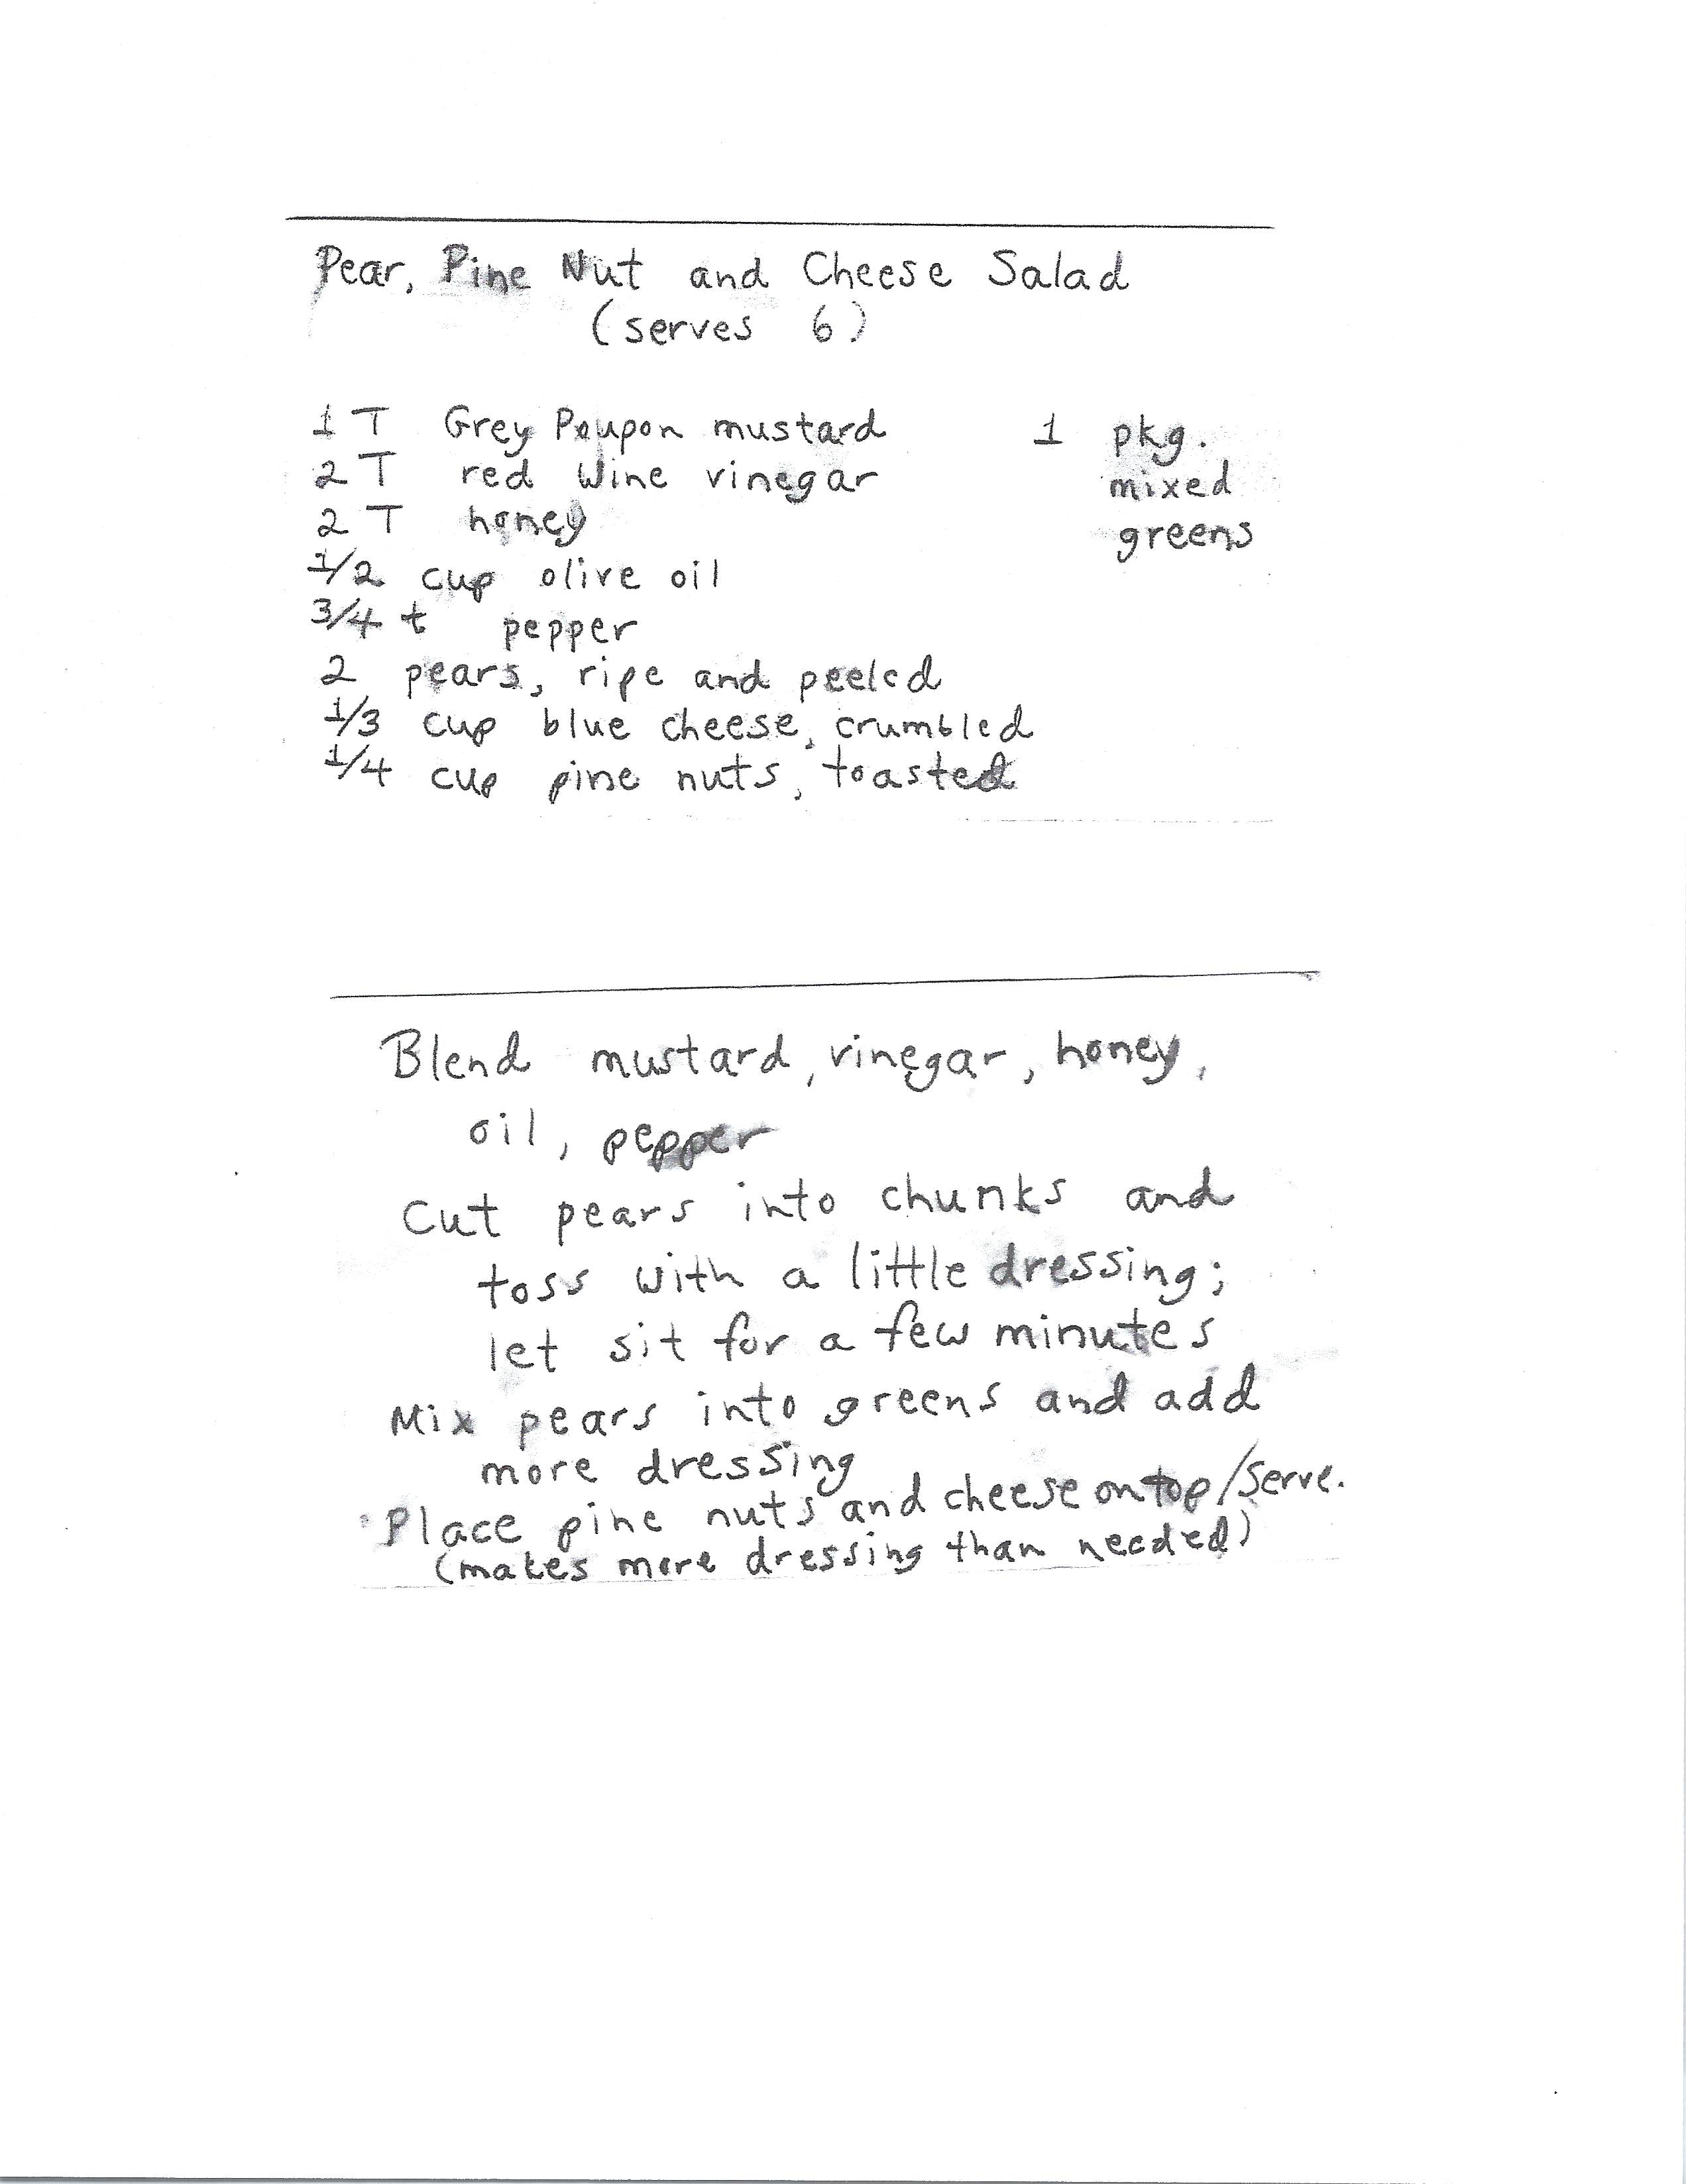 Pear, Pine Nut and Cheese Salad
(serves 6)
1 T Grey Poupon mustard
2 T red wine vinegar
2 T honey
1/2 cup olive oil
3/4 t pepper
2 pears, ripe and peeled
1/3 cup blue cheese, crumbled
1/4 cup pine nuts, toasted
1 pkg.
mixed
greens
Blend mustard, vinegar, honey,
oil, pepper
Cut pears into chunks and
toss with a little dressing;
let sit for a few minutes
Mix pears into greens and add
more dressing
Place pine nuts and cheese on top/serve.
(makes more dressing than needed)